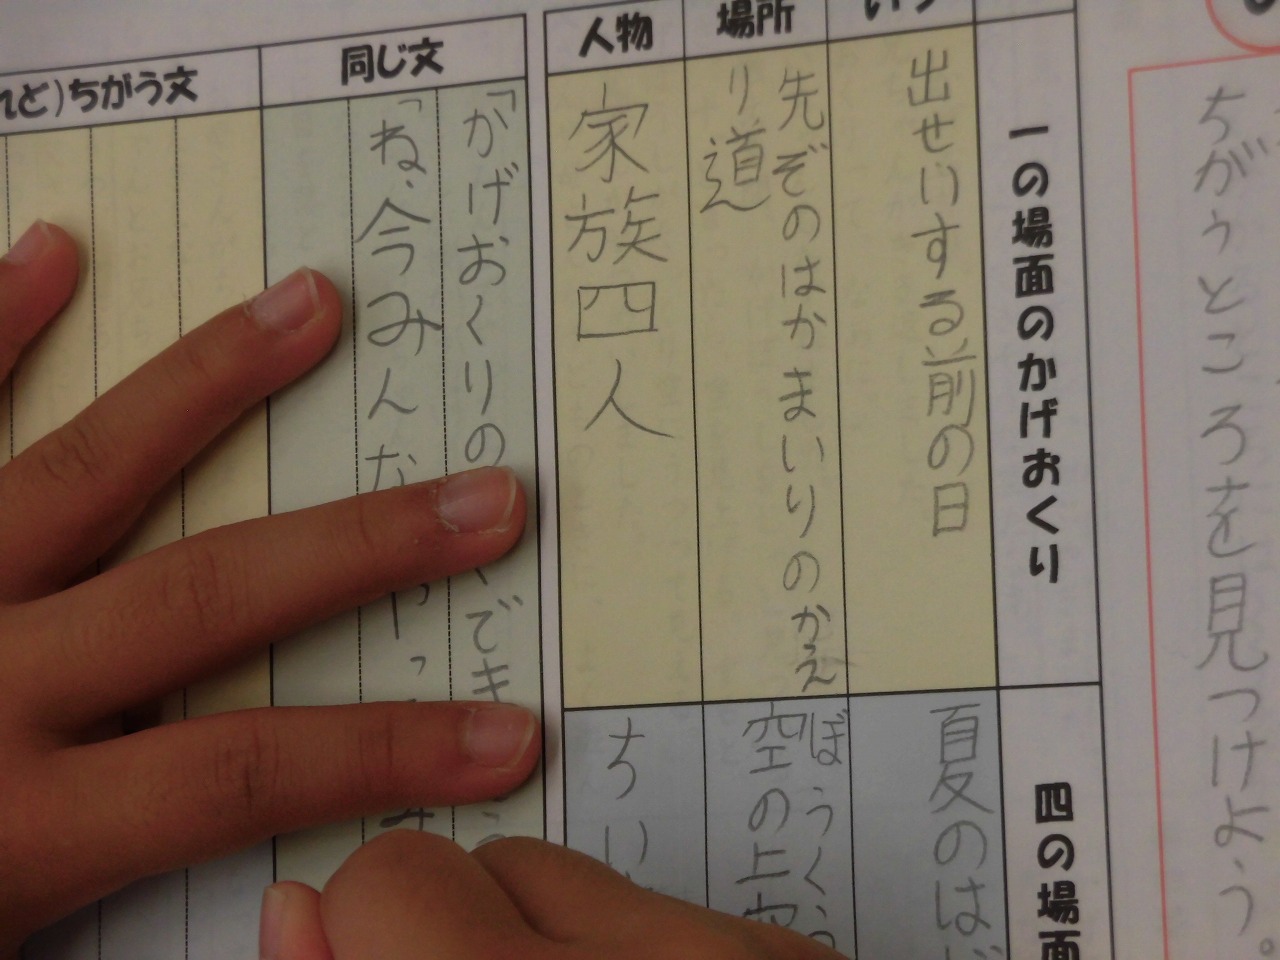 ちがうところを見つけよう。
一の場面のかげおくり
四の場面
出せいする前の日
夏のは
場所
先ぞのはかまいりのかえ
り道
ぼうくう
空の上
人物
家族四人
ちい
同じ文
「かげおくりの
でき
「ね、今みんな
れど)ちがう文